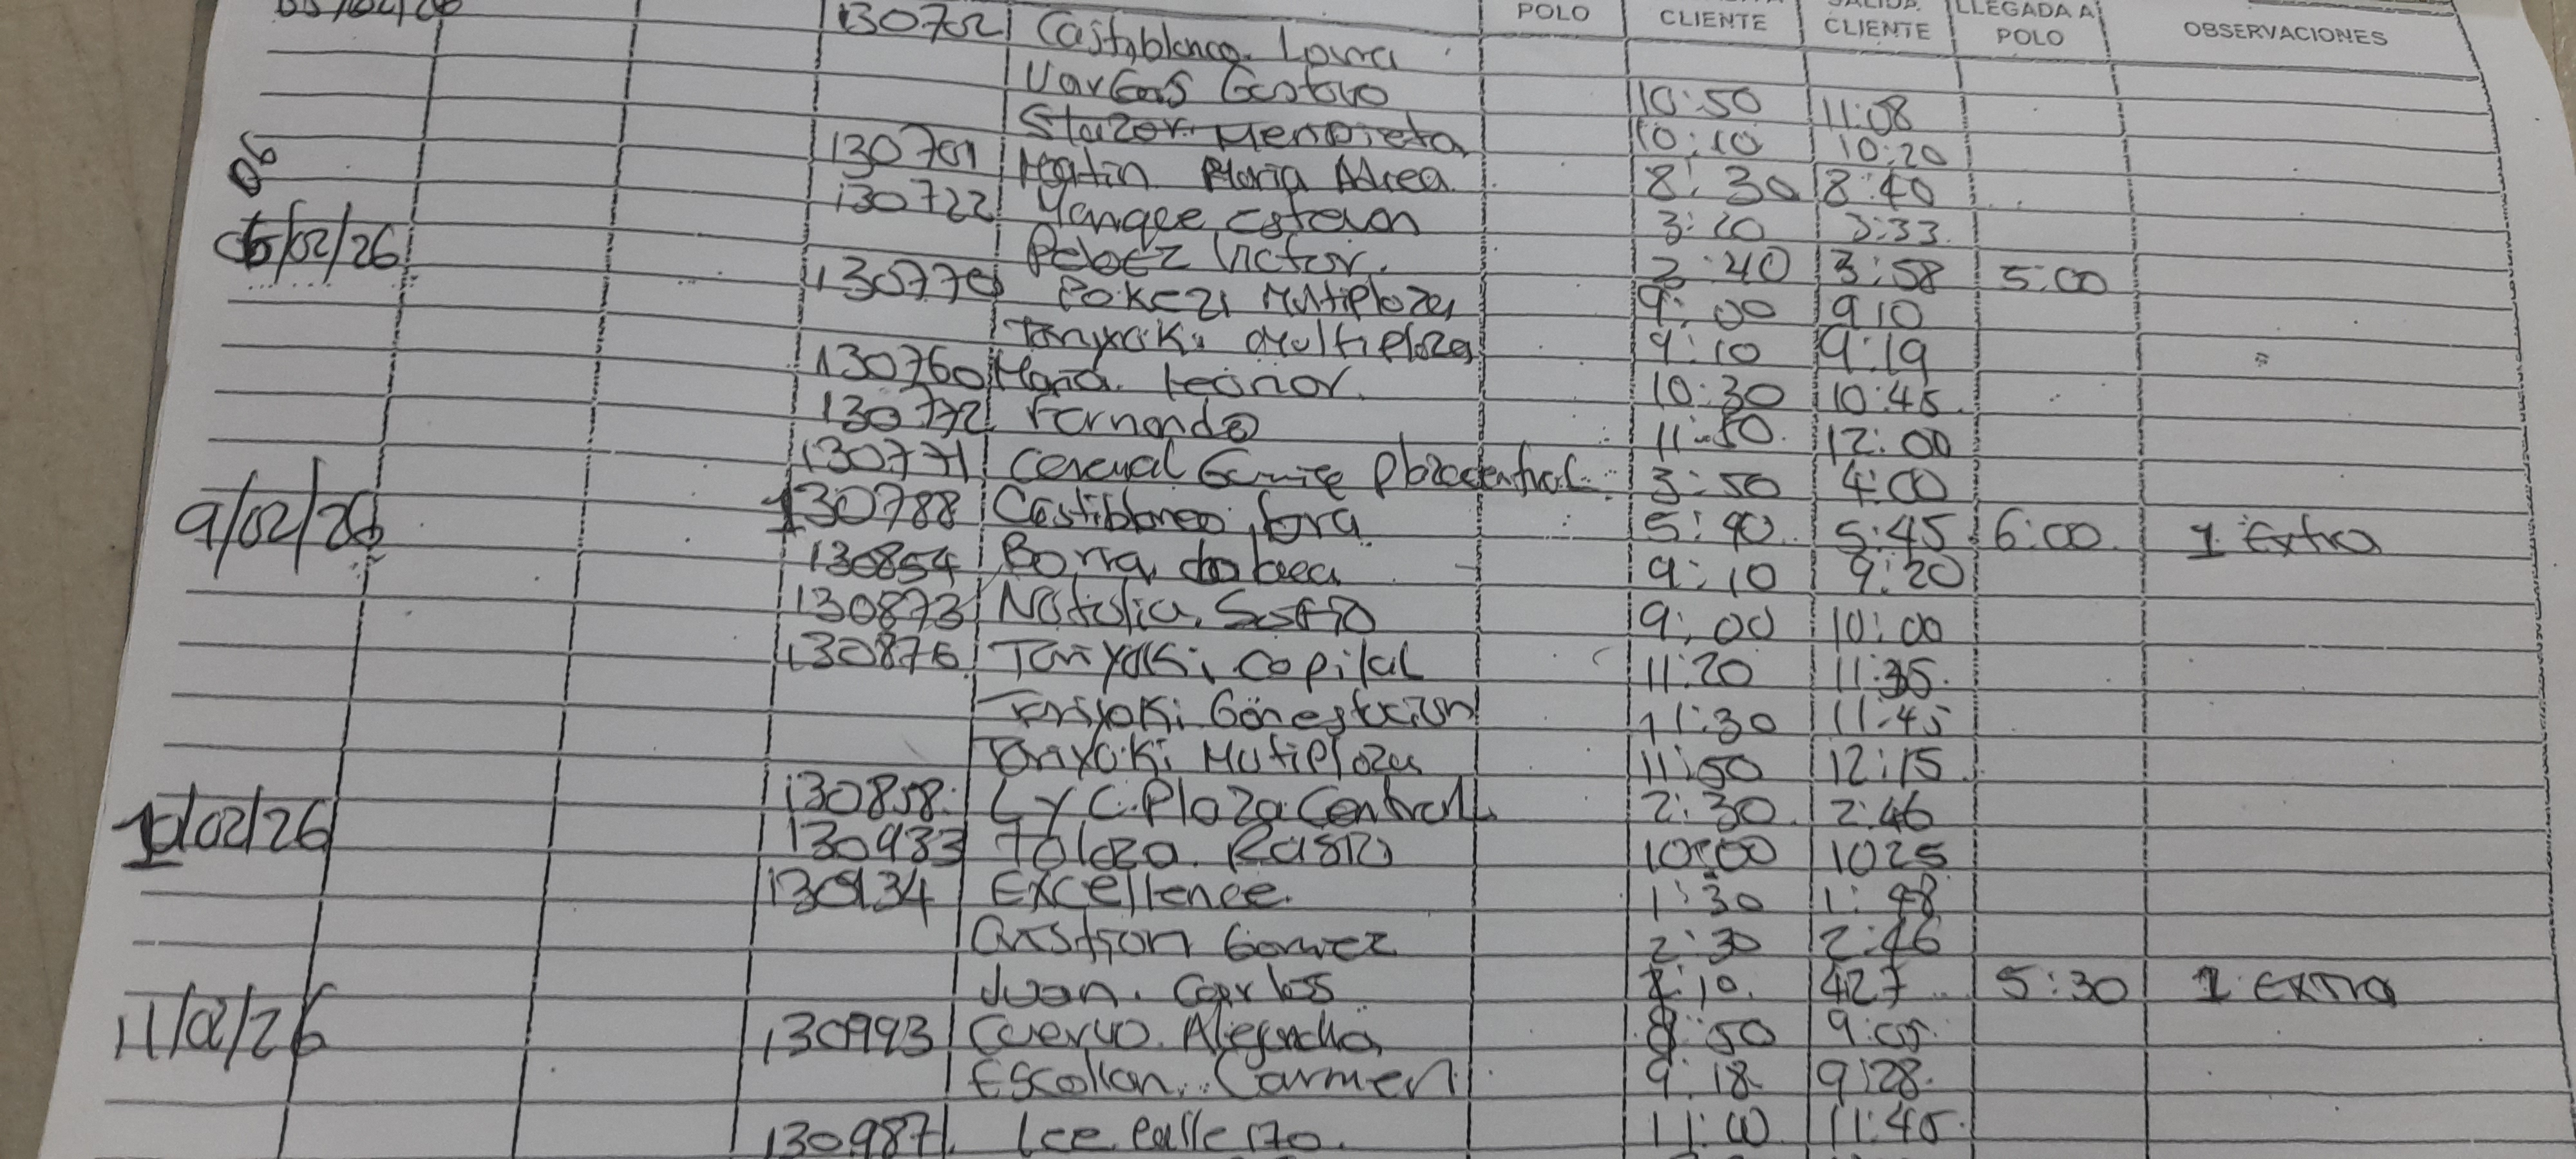 POLO CLIENTE SALIDA CLIENTE LLEGADA A POLO OBSERVACIONES
05/02/26 130702 Castiblanco Laura
Vargas Gustavo 10:50 11:08
10:10 10:20
130701 Matin Maria 8:30 8:40
130722 Yanque Estevan 3:20 3:33
06
06/02/26 Pelaez Victor. 3:40 3:58 5:00
130770 Pokezi Multiplaza 9:00 910
Tanyaki Multiplaza 9:10 9:19
130760 Maria Leonor. 10:30 10:45
130772 Fernando 11:50 12:00
130771 Plazacentral 3:50 4:00
9/02/26 130788 Castiblanco 5:40 5:45 6:00 1 Extra
130854 9:10 9:20
130873 Natalia 9:00 10:00
130876 Tanyaki Copital 11:20 11:35
11:30 11:45
Tanyaki Mutiplaza 11:50 12:15
130858 L y C Plaza Central 2:30 2:46
10/02/26 130933 10:00 1025
130934 Excellence 1:30 1:48
Gomez 2:30 2:46
Juan. Carlos 427 5:30 1 Extra
11/02/26 130993 Cuervo Alejandra 8:50 9:05
Carmen 9:18 9:28
130987 Lee 11:40 11:45